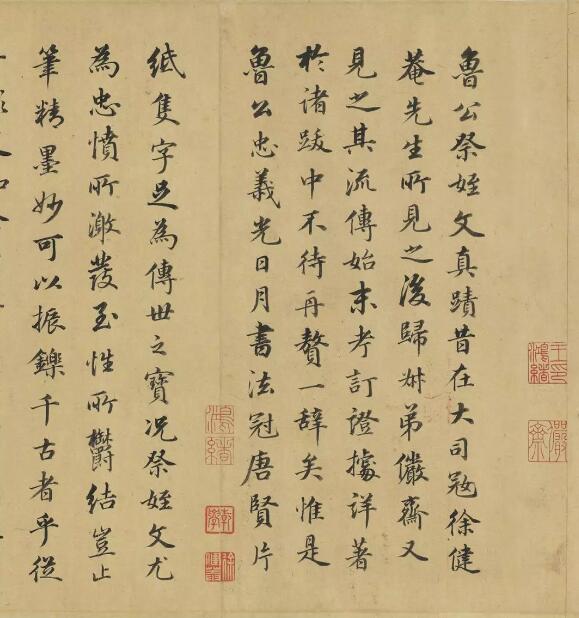 王鴻緒印
儼齋
魯公祭姪文真蹟昔在大司寇徐健
菴先生所見之後歸叔弟儼齋又
見之其流傳始末考訂證據詳著
於諸跋中不待再贅一辭矣惟是
魯公忠義光日月書法冠唐賢片
鴻緒
乾學
紙隻字足為傳世之寶況祭姪文尤
為忠憤所激發至性所鬱結豈止
筆精墨妙可以振鑠千古者乎從